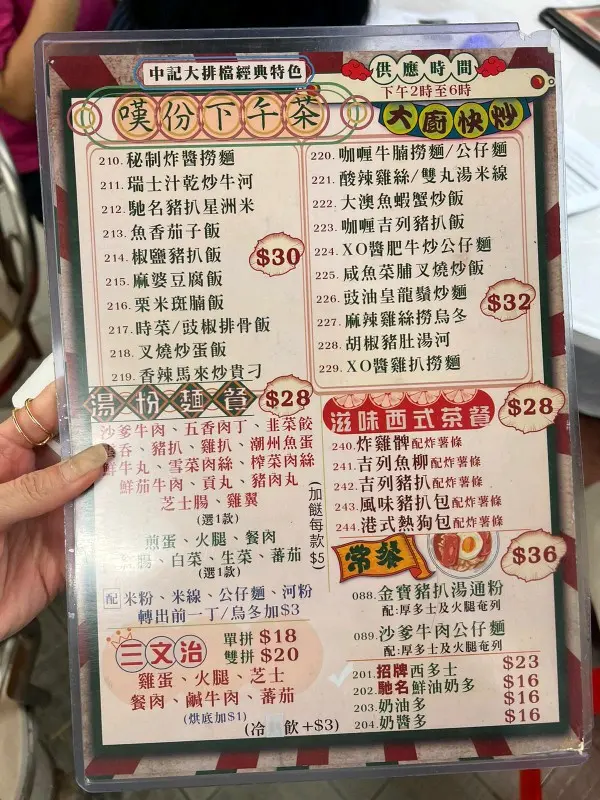 中記大排檔經典特色
供應時間
下午2時至6時
嘆份下午茶
大廚快炒
210. 秘制炸醬撈麵
211. 瑞士汁乾炒牛河
212. 馳名豬扒星洲米
213. 魚香茄子飯
214. 椒鹽豬扒飯
215. 麻婆豆腐飯
216. 栗米斑腩飯
217. 時菜/豉椒排骨飯
218. 叉燒炒蛋飯
219. 香辣馬來炒貴刁
$30
220. 咖喱牛腩撈麵/公仔麵
221. 酸辣雞絲/雙丸湯米線
222. 大澳魚蝦蟹炒飯
223. 咖喱吉列豬扒飯
224. XO醬肥牛炒公仔麵
225. 咸魚菜脯叉燒炒飯
226. 豉油皇龍鬚炒麵
227. 麻辣雞絲撈烏冬
228. 胡椒豬肚湯河
229. XO醬雞扒撈麵
$32
湯份麵餐
$28
沙爹牛肉、五香肉丁、韭菜餃
吞、豬扒、雞扒、潮州魚蛋
鮮牛丸、雪菜肉絲、榨菜肉絲
鮮茄牛肉、貢丸、豬肉丸
芝士腸、雞翼
(選1款)
煎蛋、火腿、餐肉
腸、白菜、生菜、蕃茄
(選1款)
(加餸每款$5)
配 米粉、米線、公仔麵、河粉
轉出前一丁/烏冬加$3
三文治
單拼 $18
雙拼 $20
雞蛋、火腿、芝士
餐肉、鹹牛肉、蕃茄
(烘底加$1)
(冷飲+$3)
滋味西式茶餐
$28
240. 炸雞髀 配炸薯條
241. 吉列魚柳 配炸薯條
242. 吉列豬扒 配炸薯條
243. 風味豬扒包 配炸薯條
244. 港式熱狗包 配炸薯條
常餐
$36
088. 金寶豬扒湯通粉
配:厚多士及火腿奄列
089. 沙爹牛肉公仔麵
配:厚多士及火腿奄列
201. 招牌西多士 $23
202. 馳名鮮油奶多 $16
203. 奶油多 $16
204. 奶醬多 $16